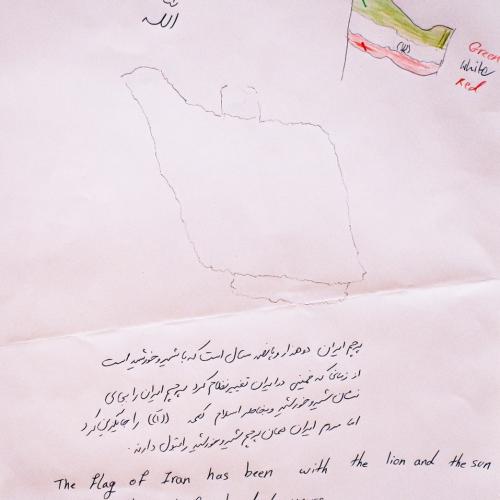 الله
Green
White
Red
پرچم ایران دوهزار و پانصد سال است که با شیر و خورشید است
از زمانی که خمینی در ایران تغییر نظام کرد پرچم ایران را بجای
نشان شیر و خورشید بخاطر اسلام کلمه ((الله)) را جایگزین کرد
اما مردم ایران همان پرچم شیر و خورشید را قبول دارند.
The flag of Iran has been with the lion and the sun